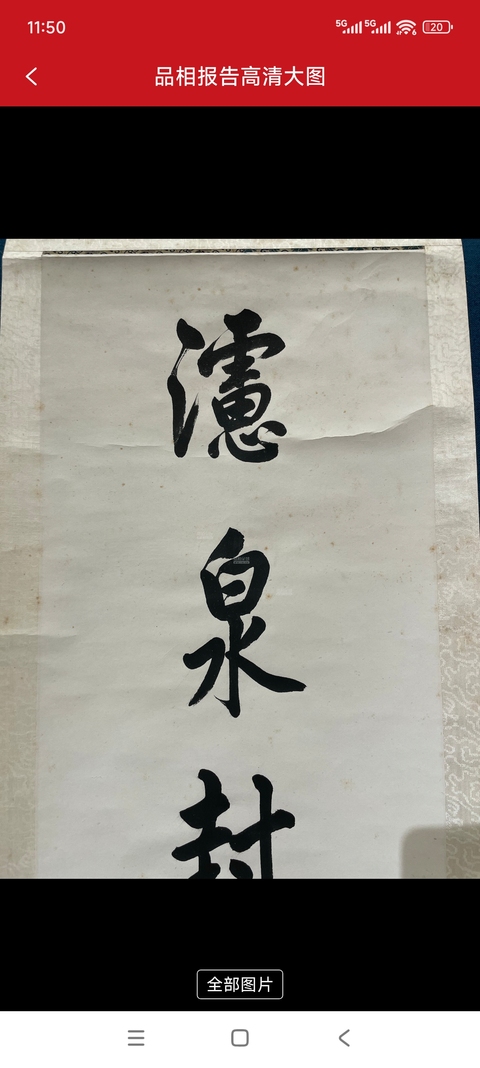 11:50
5G 5G 20
品相报告高清大图
濾
泉
封
全部图片